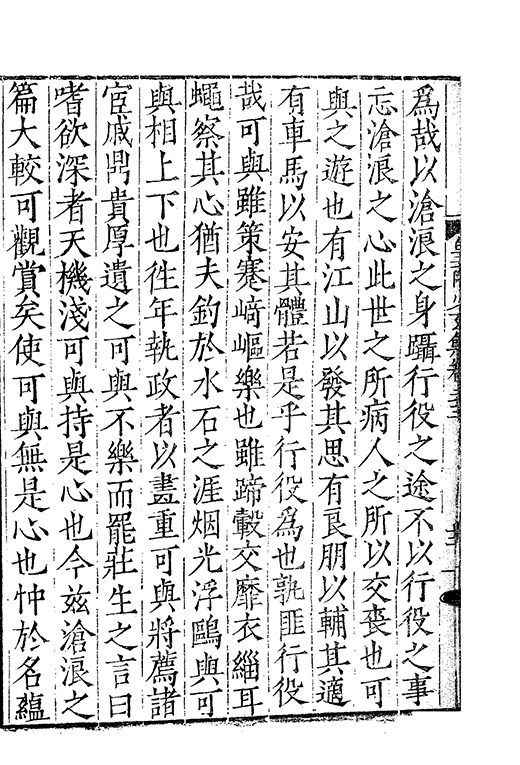 爲哉以滄浪之身躡行役之途不以行役之事
忘滄浪之心此世之所病人之所以交喪也可
與之遊也有江山以發其思有良朋以輔其適
有車馬以安其體若是乎行役爲也孰匪行役
哉可與雖策蹇崎嶇樂也雖蹄轂交靡衣緇耳
蠅察其心猶夫釣於水石之涯烟光浮鷗與可
與相上下也徃年執政者以畵重可與將薦諸
宦戚鼎貴厚遺之可與不樂而罷莊生之言曰
嗜欲深者天機淺可與持是心也今兹滄浪之
篇大較可觀賞矣使可與無是心也忡於名蘊